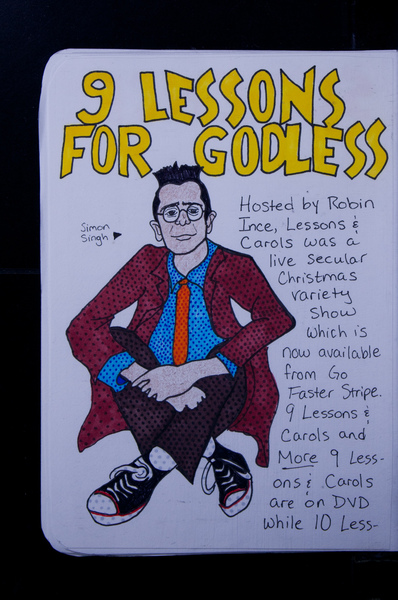 9 LESSONS
FOR GODLESS
Simon
Singh
Hosted by Robin
Ince, Lessons &
Carols was a
live secular
Christmas
variety
show
which is
now available
from Go
Faster Stripe.
9 Lessons &
Carols and
More 9 Less-
ons & Carols
are on DVD
while 10 Less-